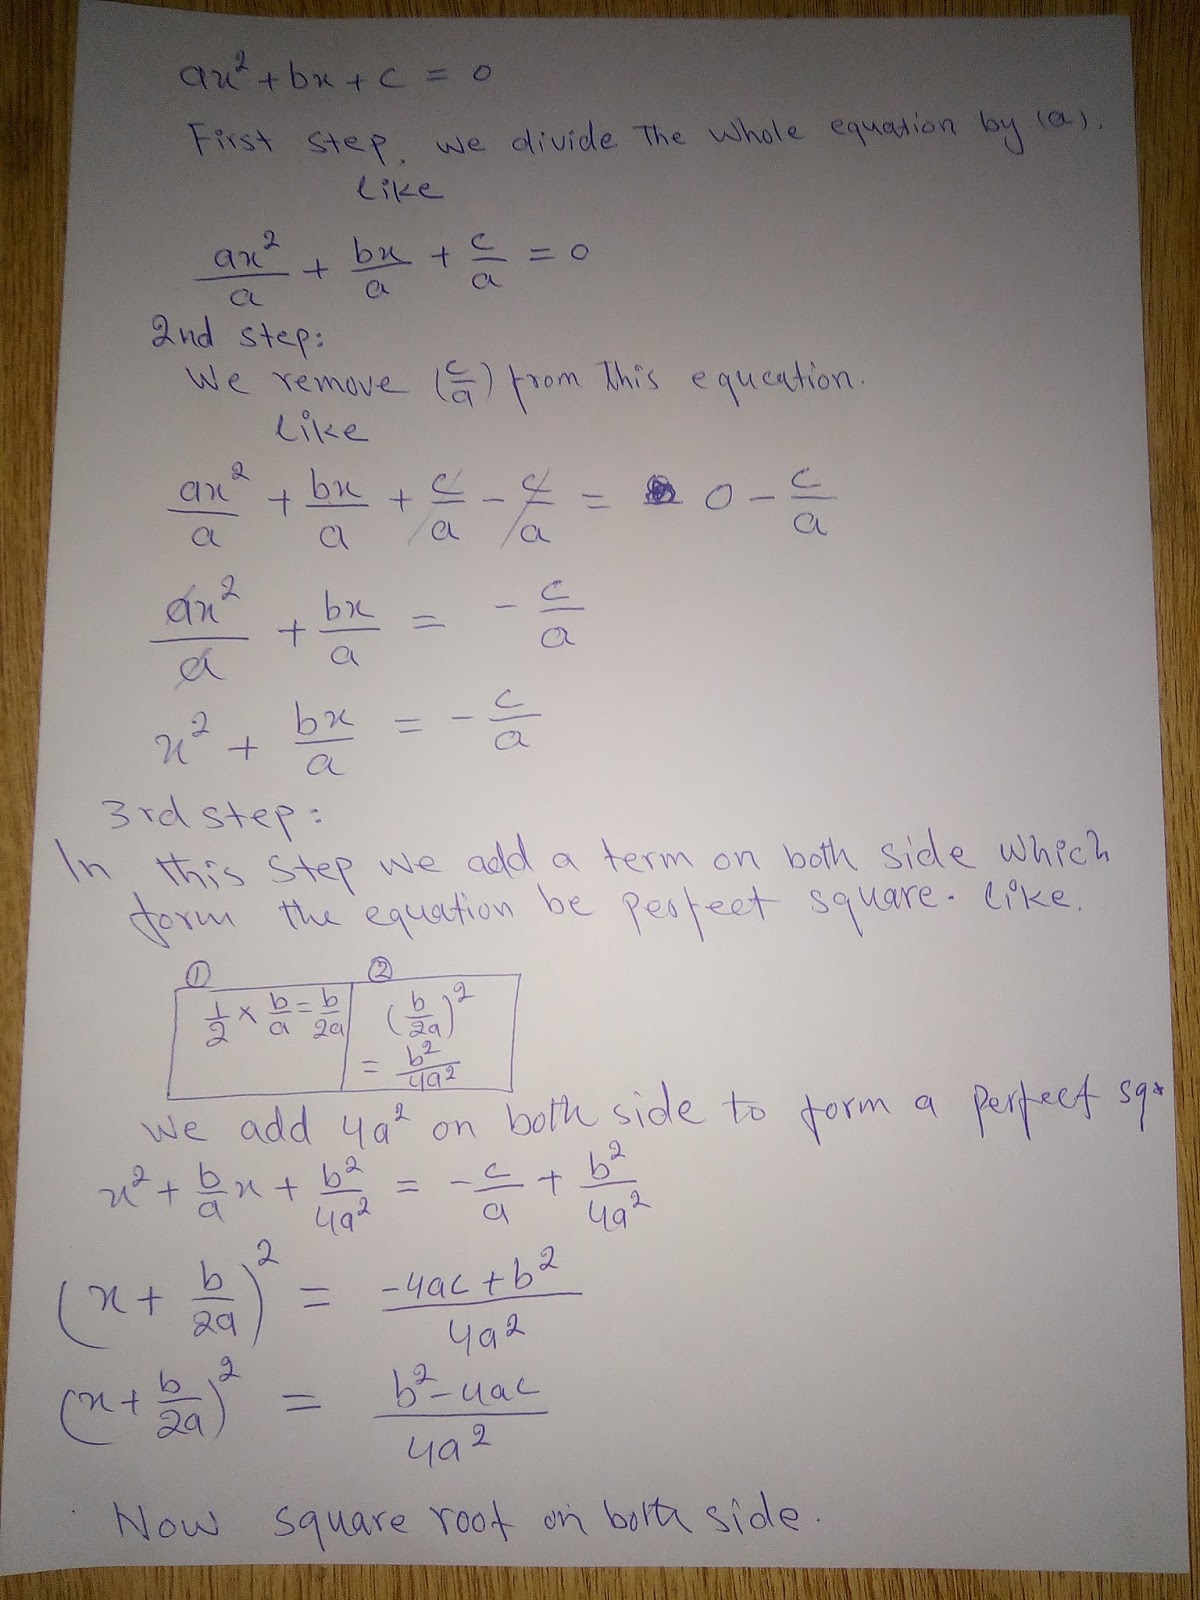 ax² + bx + c = 0
First step, we divide The Whole equation by (a).
like
ax²/a + bx/a + c/a = 0
2nd step:
We remove (c/a) from This equcation.
like
ax²/a + bx/a + c/a - c/a = 0 - c/a
ax²/a + bx/a = - c/a
x² + bx/a = - c/a
3rd step:
In this step we add a term on both side which
form the equation be perfect square. like.
① ②
1/2 × b/a = b/2a (b/2a)²
= b²/4a²
We add 4a² on both side to form a perfect sq.
x² + b/a x + b²/4a² = - c/a + b²/4a²
(x + b/2a)² = -4ac + b²/4a²
(x + b/2a)² = b² - 4ac/4a²
Now square root on both side.